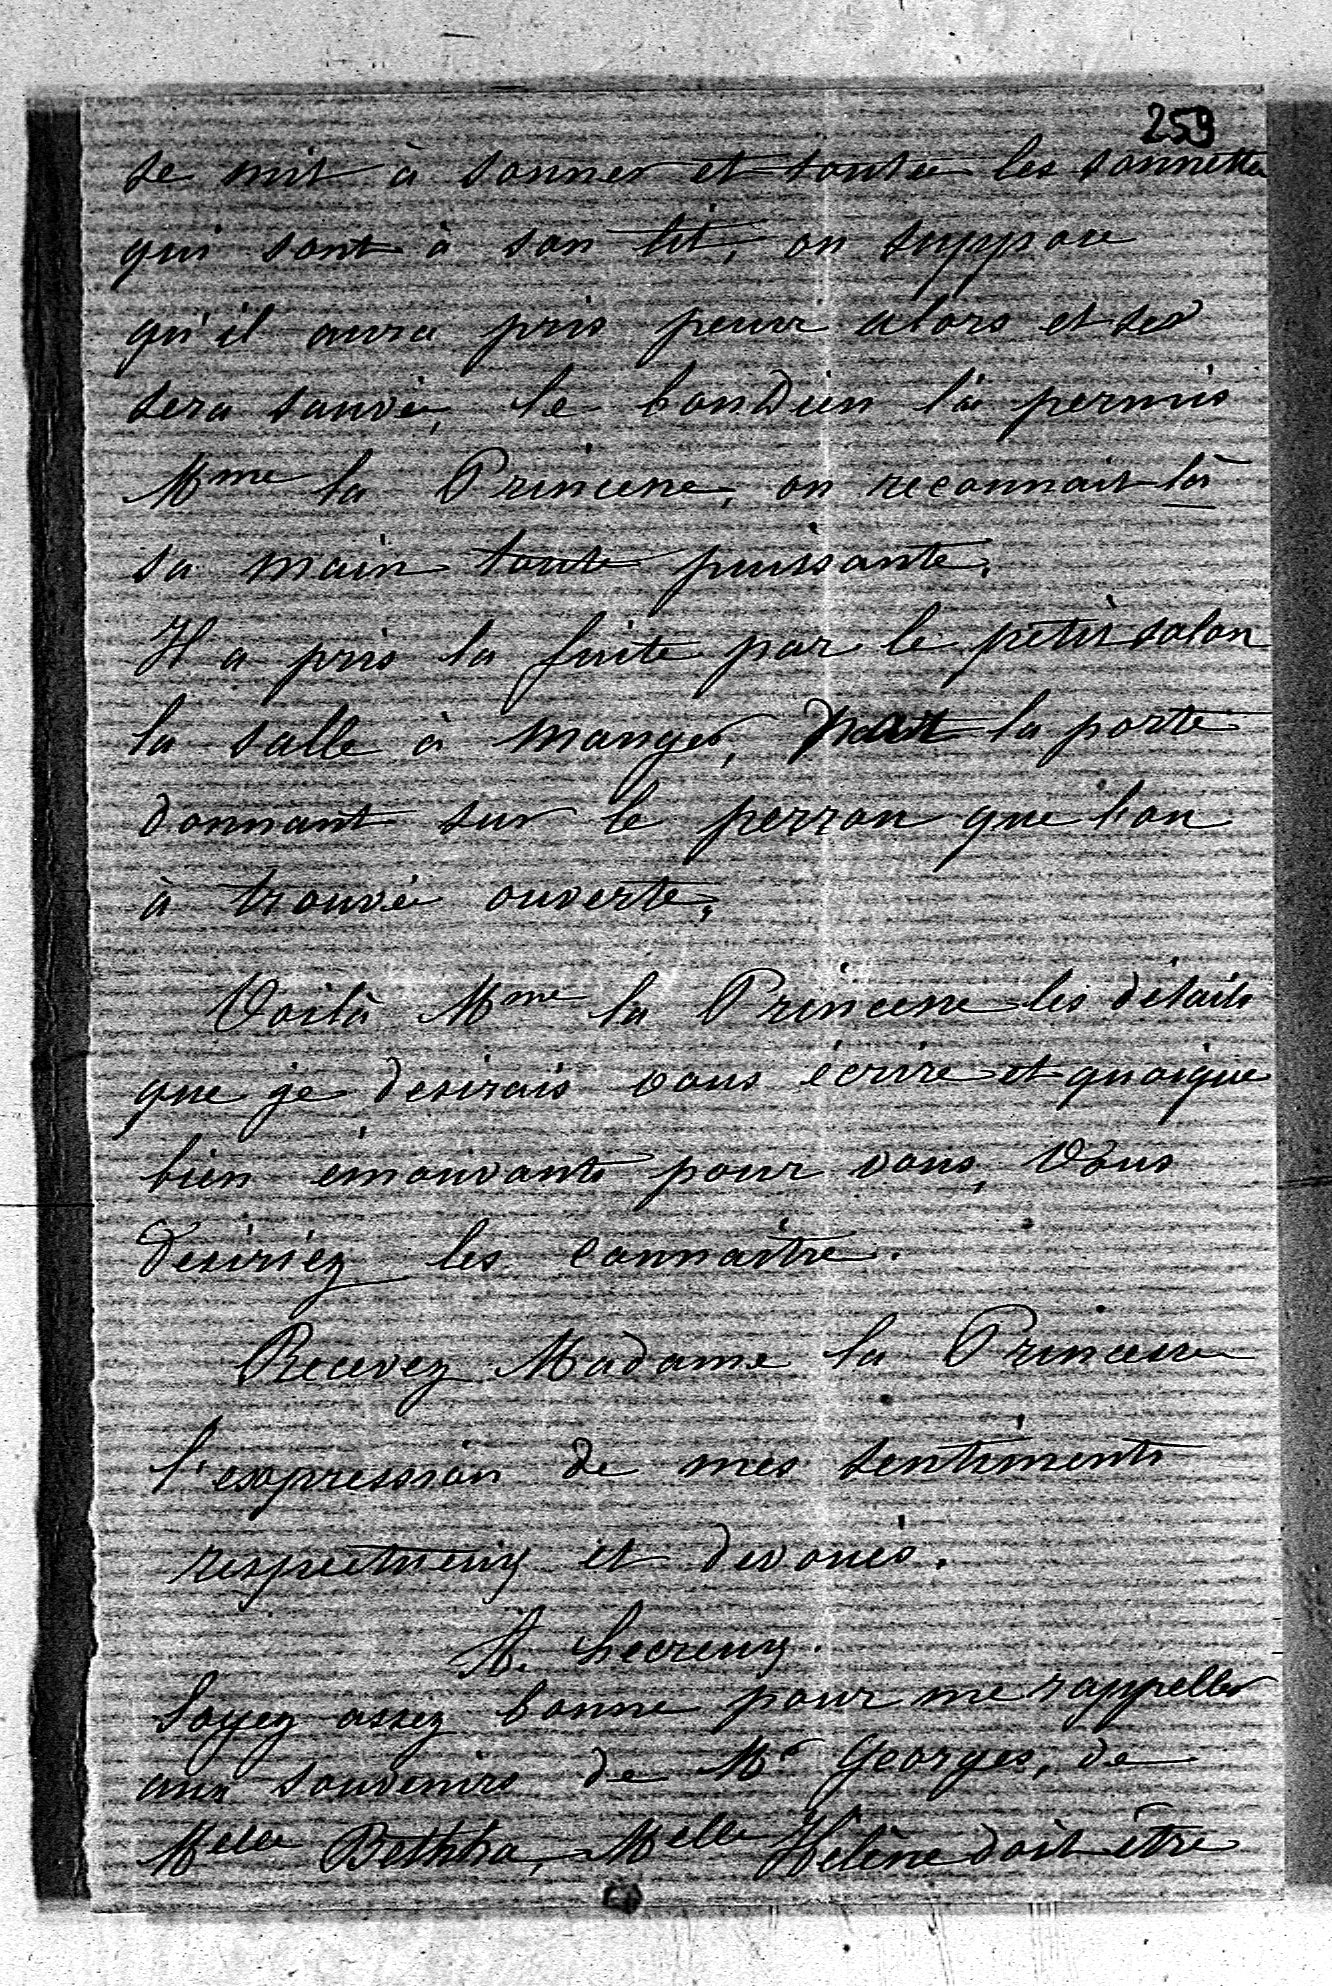 259
se mit à sonner et toutes les sonnettes
qui sont à son lit, on suppose
qu'il aura pris peur alors et se
sera sauvé, le bon Dieu l'à permis
Mme la Princesse, on reconnait là
sa main toute puissante.
Il a pris la fuite par le petit salon
la salle à manger, la porte
donnant sur le perron que l'on
à trouvée ouverte.
Voilà Mme la Princesse les détails
que je desirais vous écrire et quoique
bien émouvants pour vous, Vous
desiriez les connaitre.
Recevez Madame la Princesse
l'expression de mes sentiments
respectueux et devoués.
M. Lecreux.
Soyez assez bonne pour me rappeller
aux souvenirs de Mr Georges, de
Melle Bethka, Melle Hélène doit être